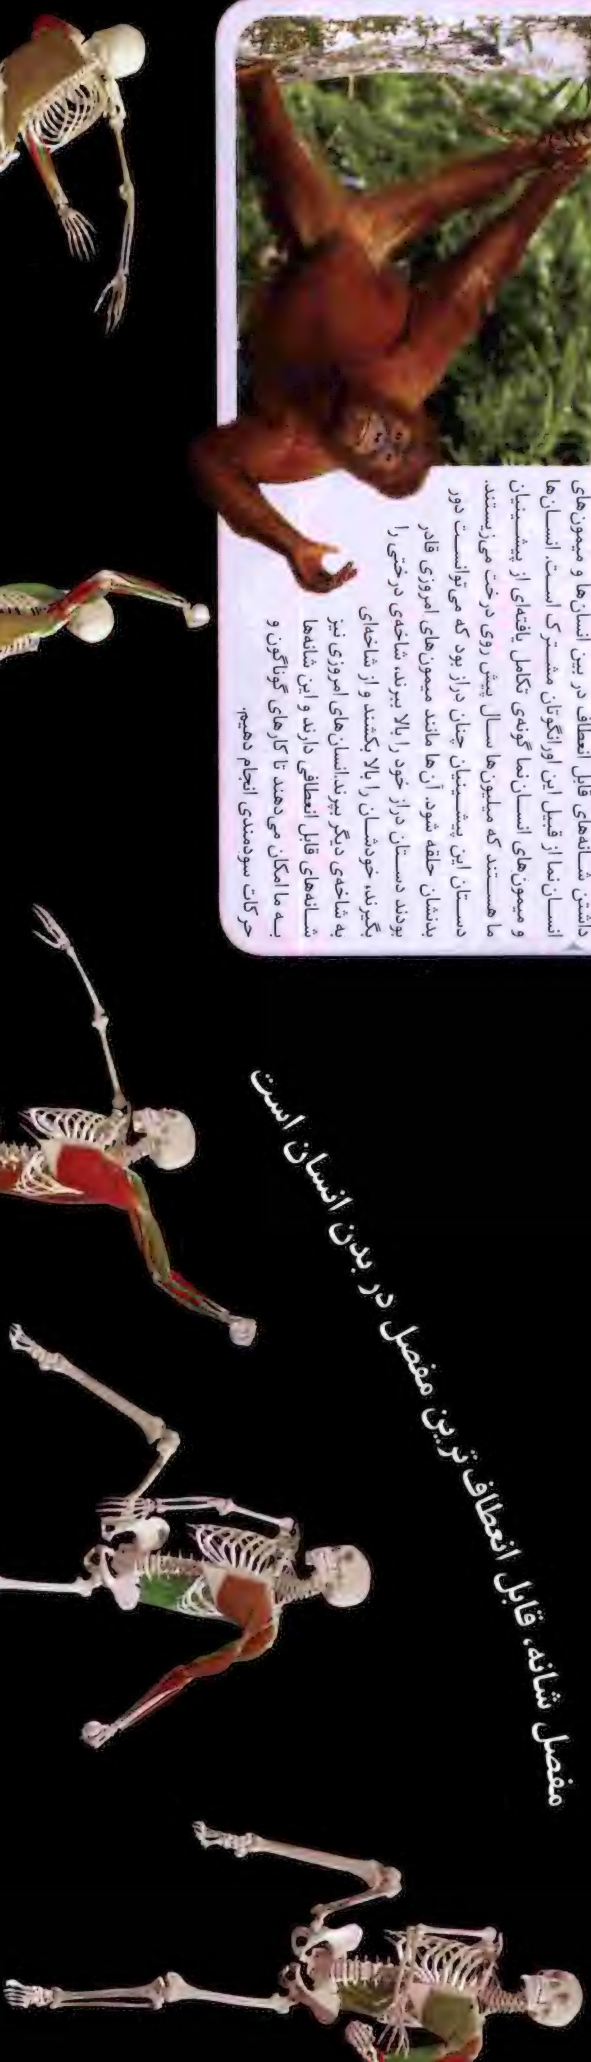 داشتن شانه‌های قابل انعطاف در بین انسان‌ها و میمون‌های
انسان‌نما از قبیل این اورانگوتان مشترک است. انسان‌ها
و میمون‌های انسان‌نما گونه‌ی تکامل یافته‌ای از پیشینیان
ما هستند که میلیون‌ها سال پیش روی درخت می‌زیستند.
دستان این پیشینیان چنان دراز بود که می‌توانست دور
بدنشان حلقه شود. آن‌ها مانند میمون‌های امروزی قادر
بودند دستان دراز خود را بالا ببرند، شاخه‌ی درختی را
بگیرند، خودشان را بالا بکشند و از شاخه‌ای
به شاخه‌ی دیگر بپرند.انسان‌های امروزی نیز
شانه‌های قابل انعطافی دارند و این شانه‌ها
به ما امکان می‌دهند تا کارهای گوناگون و
حرکات سودمندی انجام دهیم.
مفصل شانه، قابل انعطاف ترین مفصل در بدن انسان است